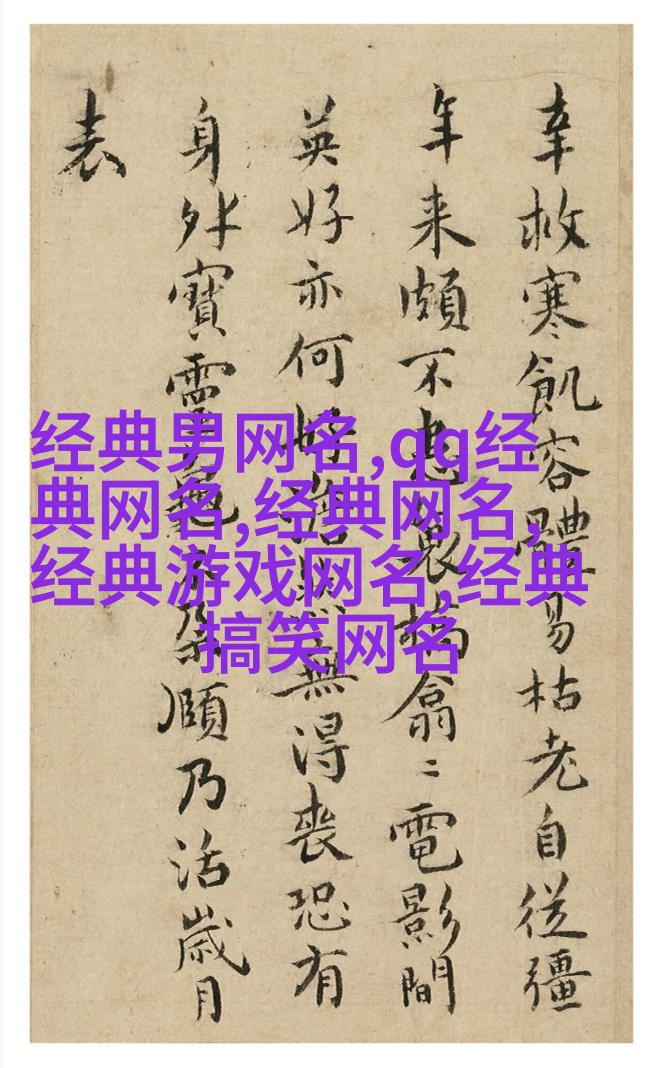 幸救寒飢容體易枯老自從彊
年来頗不裏槁翕〻電影間
英好亦何好無得喪恐有
身外寶靈龜朵頤乃活歲月
表
经典男网名,qq经
典网名,经典网名,
经典游戏网名,经典
搞笑网名